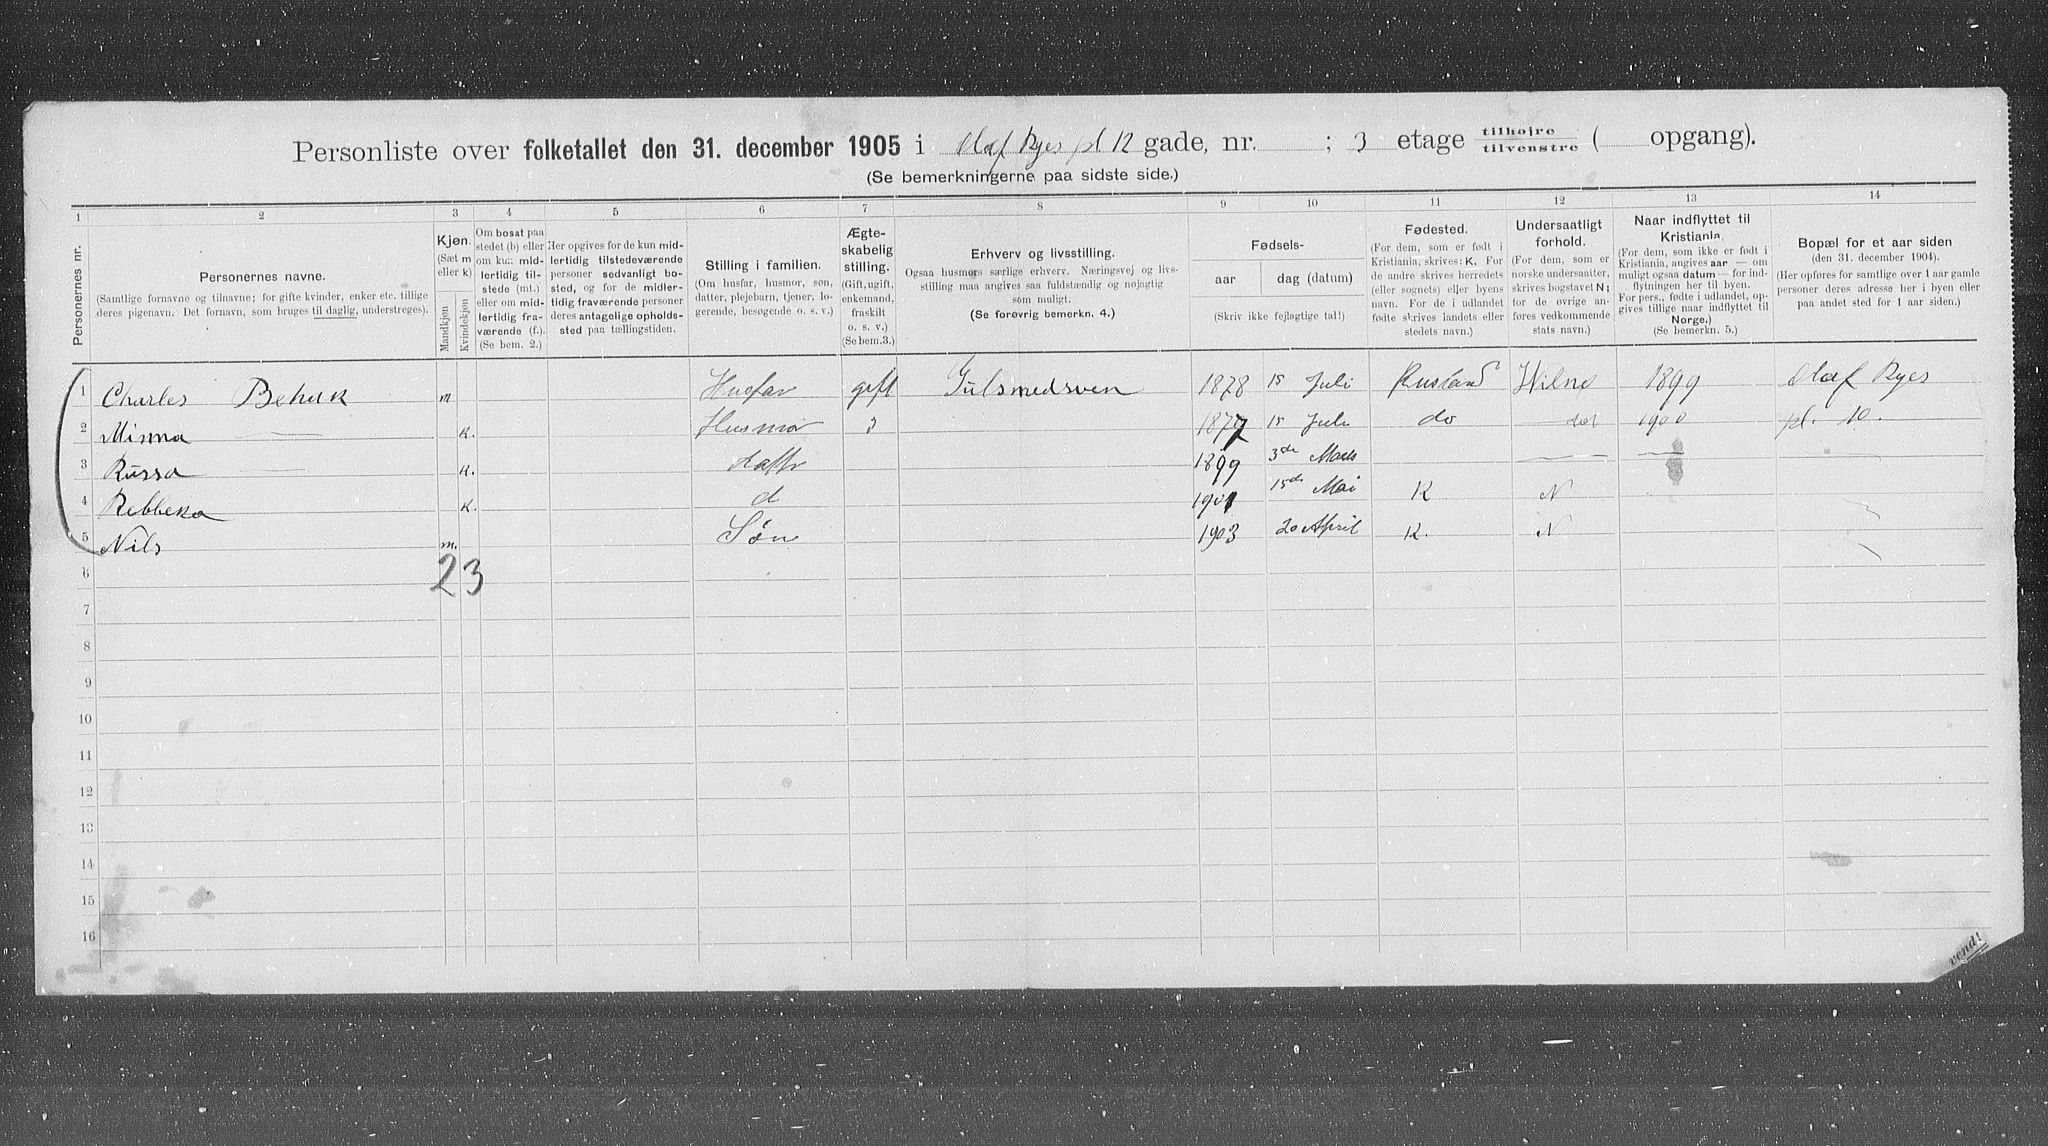 Personliste over folketallet den 31. december 1905 i Olaf Ryes pl 12 gade, nr. ; 3 etage tilhøire / tilvenstre ( opgang).
(Se bemerkningerne paa sidste side.)
1 2 3 4 5 6 7 8 9 10 11 12 13 14
Personernes nr.
Personernes navne.
(Samtlige fornavne og tilnavne; for gifte kvinder, enker etc. tillige
deres pigenavn. Det fornavn, som bruges til daglig, understreges).
Kjøn.
(Sæt m
eller k)
Mandkjøn
Kvindekjøn
Om bosat paa
stedet (b) eller
om kun mid-
lertidig til-
stede (mt.)
eller om mid-
lertidig fra-
værende (f.).
(Se bem. 2.)
Her opgives for de kun mid-
lertidig tilstedeværende
personer sedvanligt bo-
sted, og for de midler-
tidig fraværende personer
deres antagelige opholds-
sted paa tællingstiden.
Stilling i familien.
(Om husfar, husmor, søn,
datter, plejebarn, tjener, lo-
gerende, besøgende o. s. v.)
Ægte-
skabelig
stilling.
(Gift, ugift,
enkemand,
fraskilt
o. s. v.)
(Se bem.3.)
Erhverv og livsstilling.
Ogsaa husmors særlige erhverv. Næringsvej og livs-
stilling maa angives saa fuldstændig og nøjagtig
som muligt.
(Se forøvrig bemerkn. 4.)
Fødsels-
aar
dag (datum)
(Skriv ikke fejlagtige tal!)
Fødested.
(For dem, som er født i
Kristiania, skrives: K. For
de andre skrives herredets
(eller sognets) eller byens
navn. For de i udlandet
fødte skrives landets eller
stedets navn.)
Undersaatligt
forhold.
(For dem, som er
norske undersaatter,
skrives bogstavet N;
for de øvrige an-
føres vedkommende
stats navn.)
Naar indflyttet til
Kristiania.
(For dem, som ikke er født i
Kristiania, angives aar — om
muligt ogsaa datum — for ind-
flytningen her til byen.
For pers., fødte i udlandet, op-
gives tillige naar indflyttet til
Norge.)
(Se bemerkn. 5.)
Bopæl for et aar siden
(den 31. december 1904).
(Her opføres for samtlige over 1 aar gamle
personer deres adresse her i byen eller
paa andet sted for 1 aar siden.)
1 Charles Behak m Husfar gift Gulsmedsven 1878 15 Juli Rusland Wilno 1899 Olaf Ryes
2 Minna — k. Husmor 1877 15 Juli do 1900 pl. 10.
3 Russa — k. dattr 1899 3de Marts
4 Rebbeka k. d 1901 15de Mai K N
5 Nils m. Søn 1903 20 April K. N
6 2 3
7
8
9
10
11
12
13
14
15
16
vend!